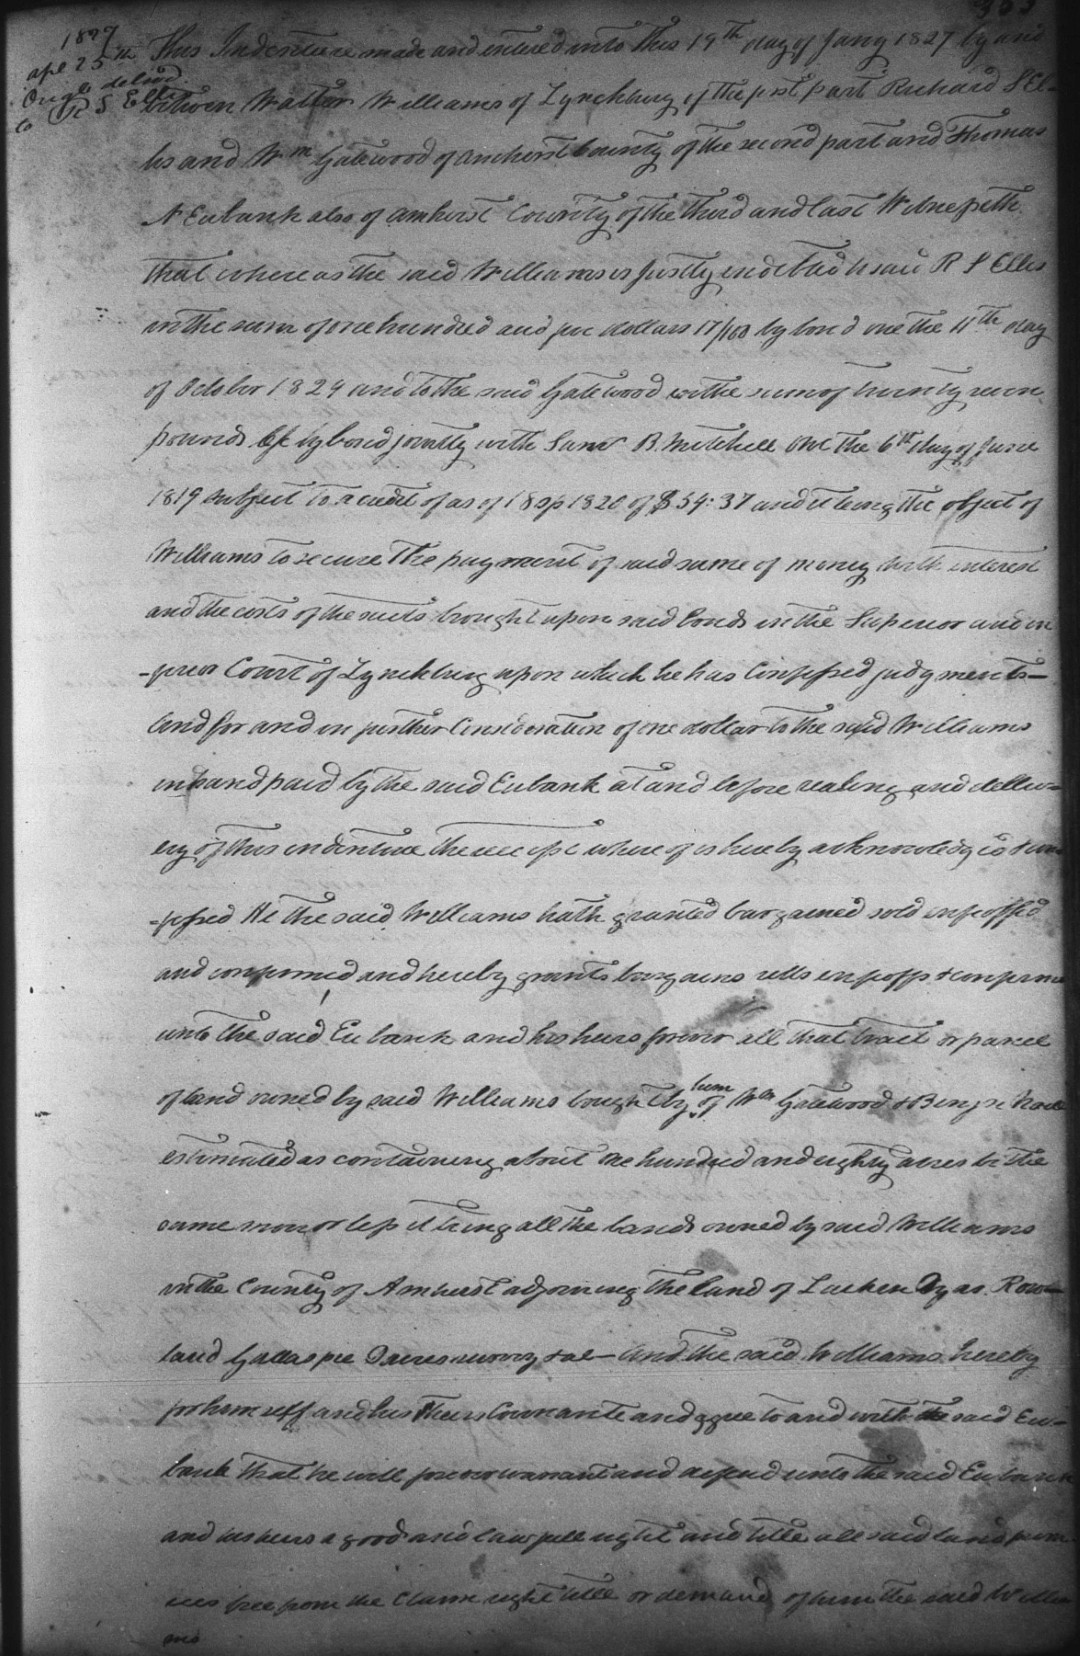 303
1827
apl 25th
Origl delivd
to R S Ellis
This Indenture made and entered into this 19th day of Jany 1827 by and
between Walter Williams of Lynchburg of the first part Richard S El-
lis and Wm Gatewood of Amherst County of the second part and Thomas
N Eubank also of Amherst County of the third and last Witnesseth
that whereas the said Williams is justly indebted to said R S Ellis
in the sum of one hundred and five dollars 17/100 by bond due the 11th day
of October 1824 and to the said Gatewood in the sum of twenty seven
pounds by bond jointly with Saml B. Mitchell due the 6th day of June
1819 subject to a credit of as of 18 Sp 1820 of $54:37 and it being the object of
Williams to secure the payment of said sums of money with interest
and the costs of the suits brought upon said bonds in the Superior and in
-ferior Court of Lynchburg upon which he has confessed judgments-
and for and in further Consideration of one dollar to the said Williams
in hand paid by the said Eubank at and before sealing and deliv-
ery of this indenture the receipt whereof is hereby acknowledged & con
-fessed He the said Williams hath granted bargained sold enfeoffed
and confirmed and hereby grants bargains sells enfeoffs & confirms
unto the said Eubank and his heirs forever all that tract or parcel
of land owned by said Williams bought by him of Wm Gatewood &
estimated as containing about one hundred and eighty acres be the
same more or less it being all the lands owned by said Williams
in the County of Amherst adjoining the land of Dyas. Row-
land Gillaspie &al- And the said Williams hereby
for himself and his Heirs Covenants and agree to and with the said Eu-
bank that he will forever warrant and defend unto the said Eubank
and his heirs a good and lawfull right and title all said land prem
ises free from the claim right title or demand of him the said Willia
ms